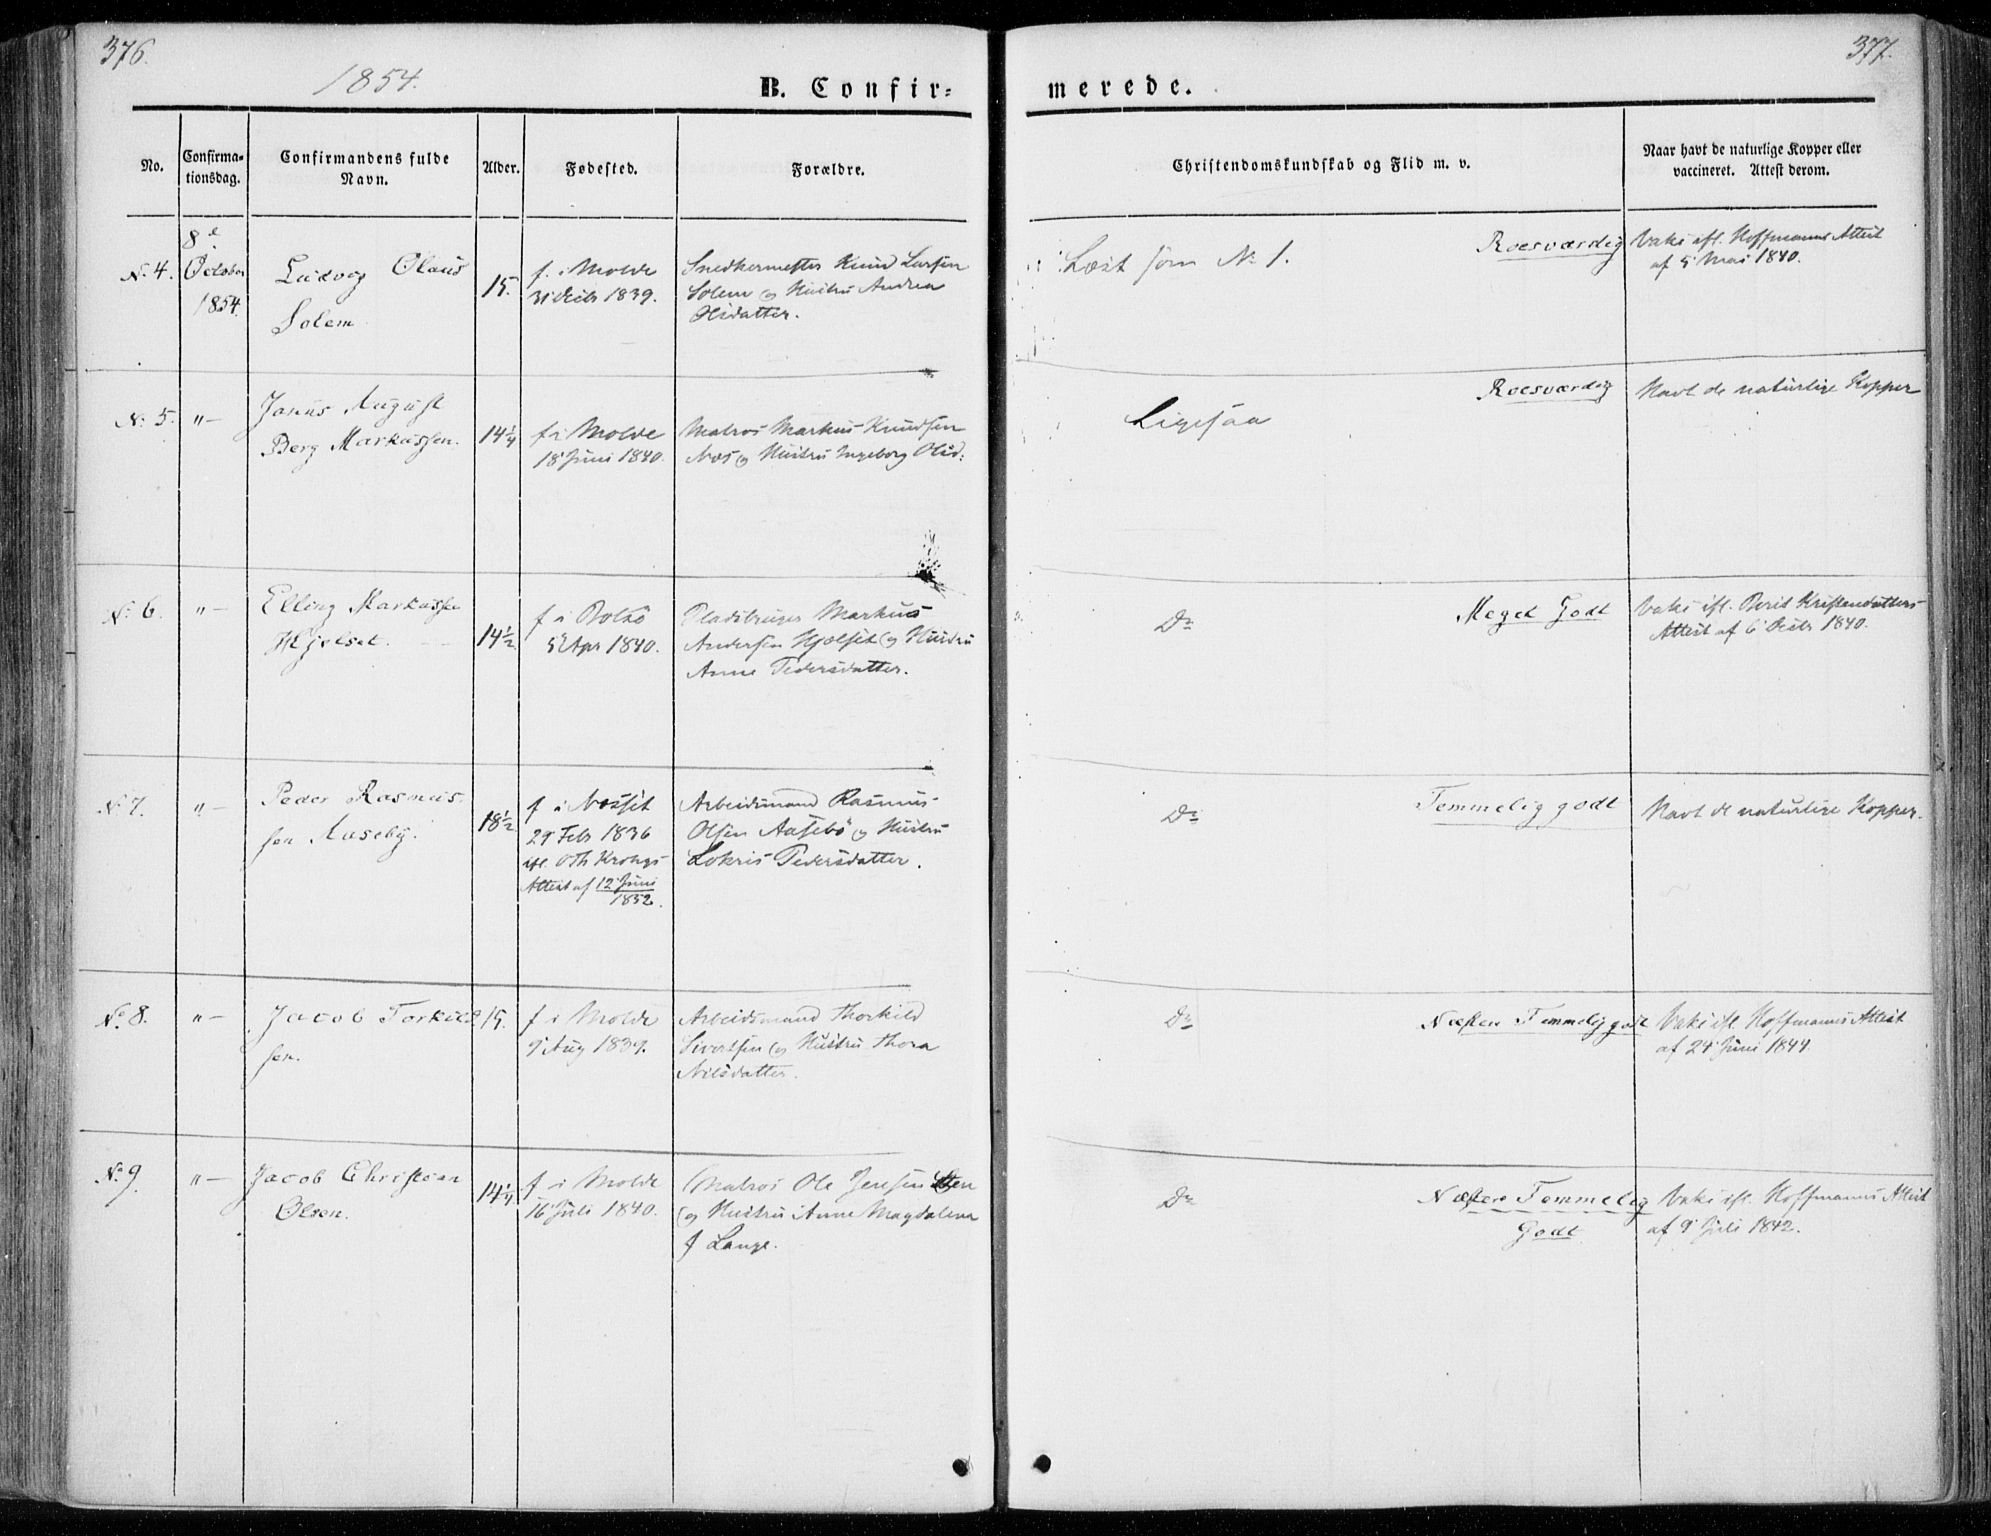 376.
1854.
B. Confir=
merede.
377.
No.
Confirma=
tionsdag.
Confirmandens fulde
Navn.
Alder.
Fødested.
Forældre.
Christendomskundskab og Flid m. v.
Naar havt de naturlige Kopper eller
vaccineret. Attest derom.
No 4.
8de
October
1854.
Ludvig Olaus
Solem
15.
f. i Molde
31 Decbr 1839.
Snedkermester Knud Larsen
Solem og Hustru Andrea
Olsdatter.
Læst som No 1.
Roesværdig
Vaks ifl. Hoffmanns Attest
af 5 Mai 1840.
No 5.
"-
Janus August
Berg Markussen.
14 1/4
f i Molde
18 Juni 1840.
Matros Markus Knudsen
Næs og Hustru Ingeborg Olsd:
Ligesaa
Roesværdig
Havt de naturlige Kopper
No 6.
"-
Elling Markussen
Hjelset.
14 1/2
f i Bolsø
5 Apr 1840.
Pladsbruger Markus
Andersen Hjelset og Hustru
Anne Pedersdatter.
Do
Meget Godt
Vaks ifl. Berit Kristendatters
Attest af 6 Decbr 1840.
No 7.
"-
Peder Rasmus-
sen Aaseby.
18 1/2
f i Nesset
29 Febr 1836
ifl. Oth Krohgs
Attest af 12 Juni
1852.
Arbeidsmand Rasmus
Olsen Aasebø og Hustru
Lokris Pedersdatter.
Do
Temmelig godt
Havt de naturlige Kopper.
No 8.
"-
Jacob Torkild
sen.
15.
f i Molde
9 Aug 1839.
Arbeidsmand Thorkild
Sivertsen og Hustru Thora
Nilsdatter.
Do
Næsten Temmelig godt
Vaks ifl. Hoffmanns Attest
af 24 Juni 1844.
No 9.
"-
Jacob Christian
Olsen.
14 1/4
f i Molde
16 Juli 1840.
Matros Ole Jensen
og Hustru Anne Magdalena
f Lange.
Do
Næsten Temmelig
Godt
Vaks ifl. Hoffmanns Attest
af 9 Juli 1842.